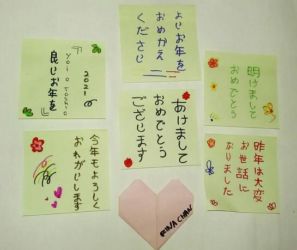 よいお年を
おむかえ
ください
2021
yoi o toshi o
良いお年を
明けまして
おめでとう
あけまして
おめでとう
ございます
今年もよろしく
おねがいします
昨年は大変
お世話に
なりました
CHAN